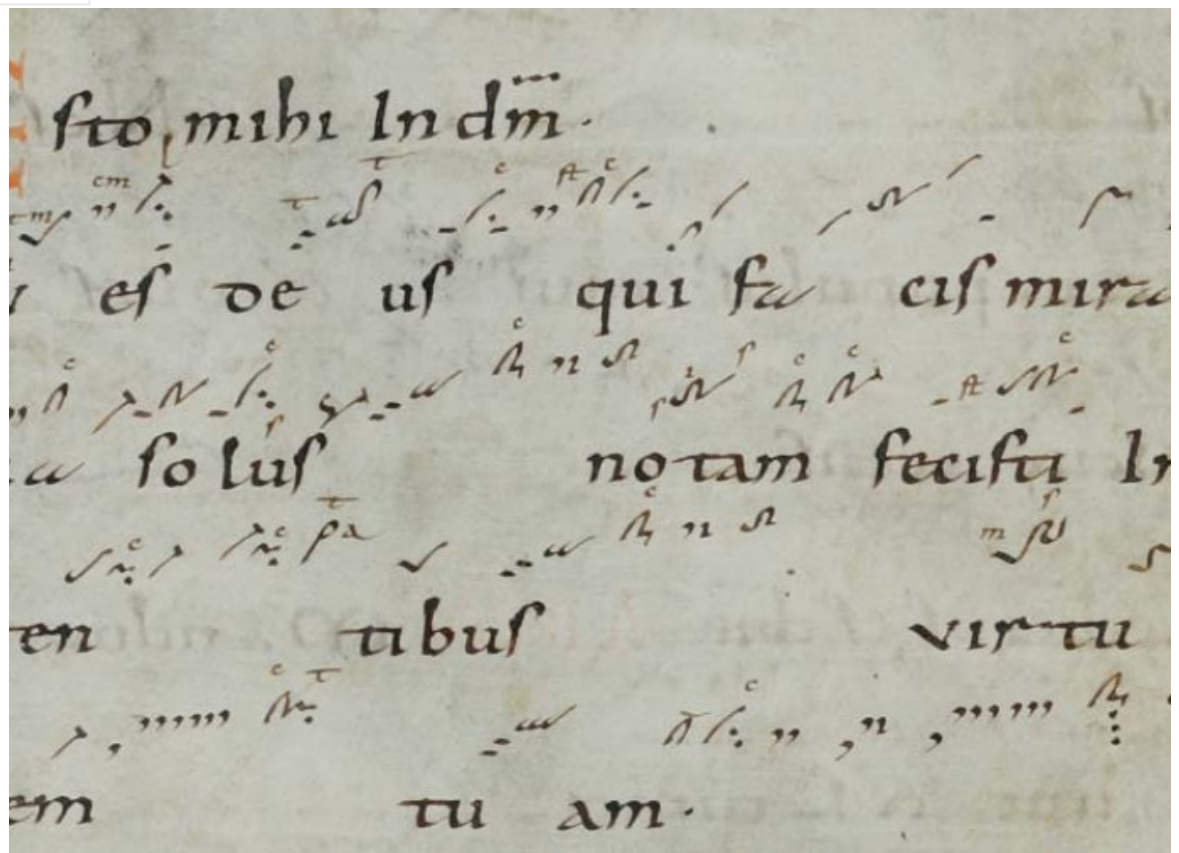 sto mihi In dm̅.
es de us qui fa cis mira
a so lus no tam fecisti In
en tibus vir tu
em tu am.